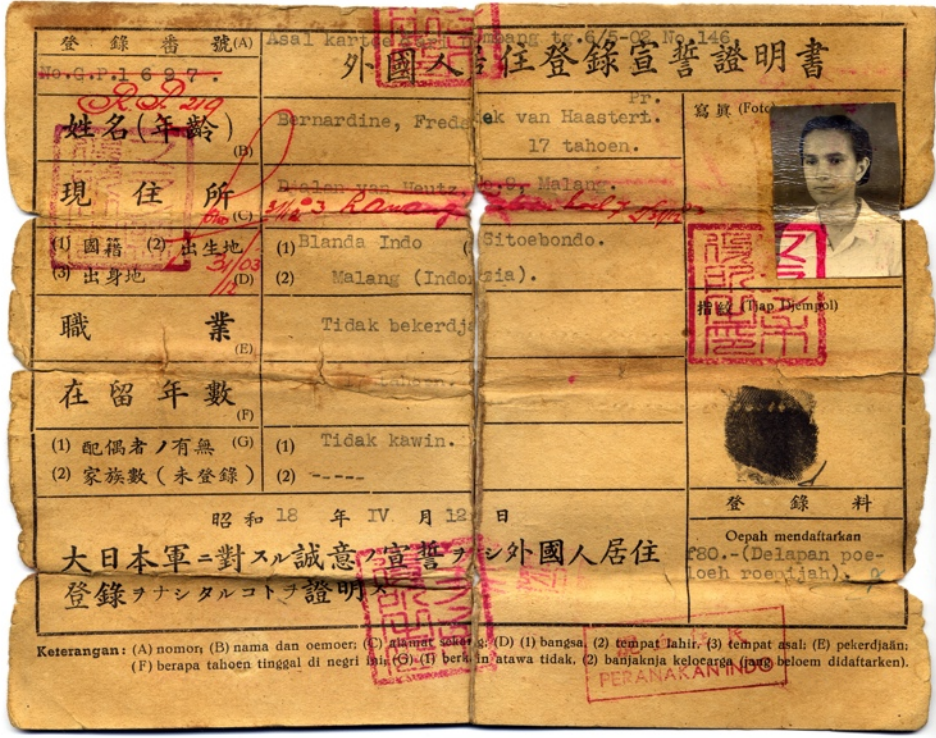 登錄番號(A)
Asal kartoe tg.6/5-02 No.146.
No.G.P.1697.
外國人居住登錄宣誓證明書
R.P. 219
姓名(年齢)
(B)
Pr.
Bernardine, Frederek van Haastert.
17 tahoen.
寫眞 (Foto)
現住所
(C)
Djalan van Heutz 9, Malang.
(1) 國籍 (2) 出生地
(3) 出身地 (D)
(1) Blanda Indo Sitoebondo.
(2) Malang (Indonezia).
31/03
職業
(E)
Tidak bekerdja
指紋 (Tjap Djempol)
在留年數
(F)
tahoen.
(1) 配偶者ノ有無 (G)
(2) 家族數(未登錄)
(1) Tidak kawin.
(2) -----
登錄料
昭和 18 年 IV 月 12 日
Oepah mendaftarkan
f80.-(Delapan poe-
loeh roepijah).
大日本軍ニ對スル誠意ノ宣誓ヲナシ外國人居住
登錄ヲナシタルコトヲ證明ス
Keterangan: (A) nomor; (B) nama dan oemoer; (C) alamat sekarang; (D) (1) bangsa, (2) tempat lahir, (3) tempat asal; (E) pekerdjaän;
(F) berapa tahoen tinggal di negri ini; (G) (1) berkawin atawa tidak, (2) banjaknja keloearga (jang beloem didaftarken).
PERANAKAN INDO